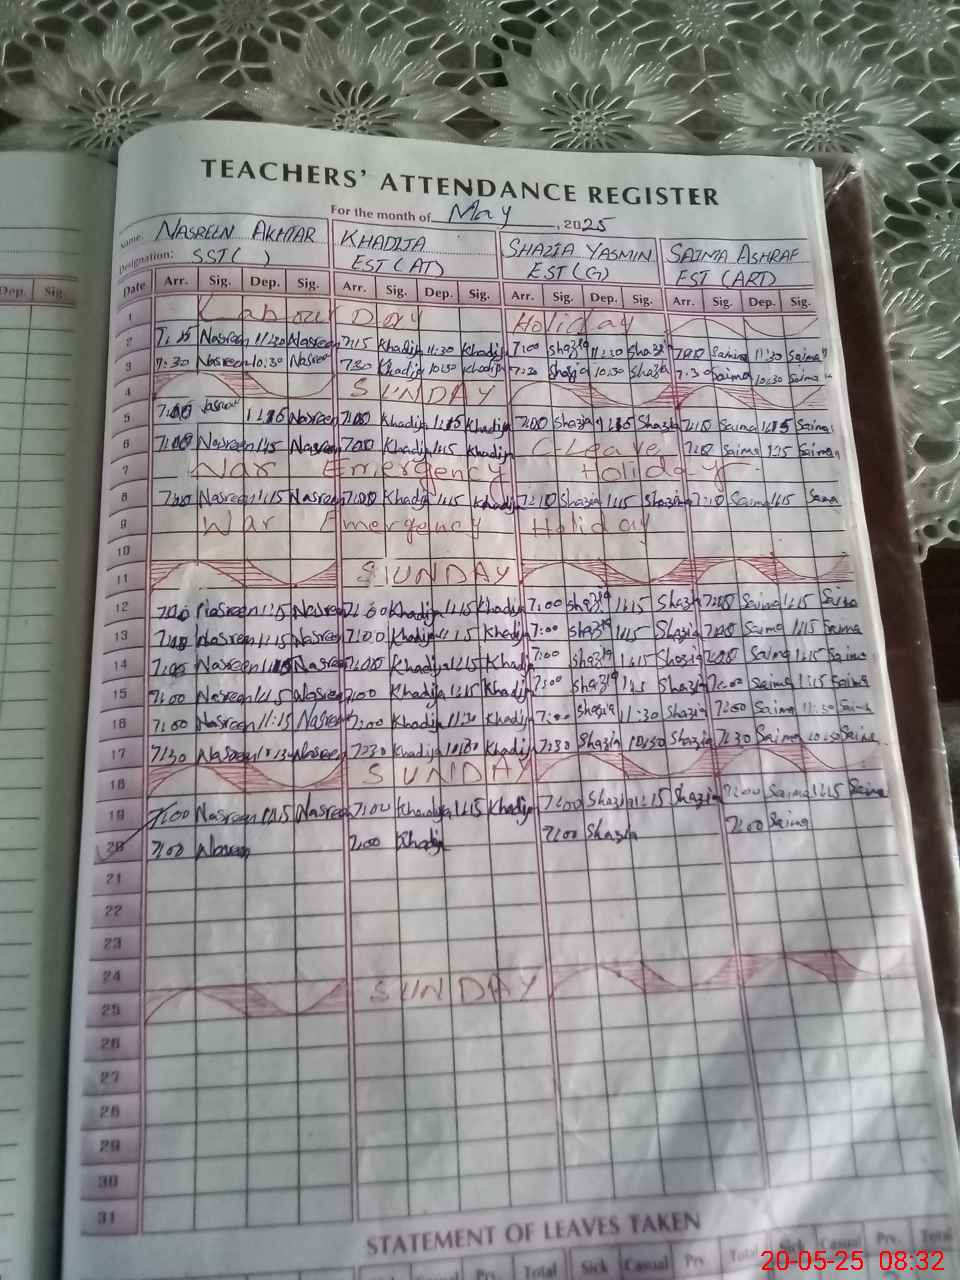 TEACHERS' ATTENDANCE REGISTER
For the month of May, 2025
Name: NASREEN AKHTAR KHADIJA SHAZIA YASMIN SAIMA ASHRAF
Designation: SST( ) EST (AT) EST (G) EST (ART)
Dep. Sig. Date Arr. Sig. Dep. Sig. Arr. Sig. Dep. Sig. Arr. Sig. Dep. Sig. Arr. Sig. Dep. Sig.
1 Labour Day Holiday
2 Nasreen 11:30 Nasreen 7:15 Khadija 11:30 Khadija 7:00 Shazia 11:30 Shazia Saima 11:30 Saima
3 7:30 Nasreen 10:30 Nasreen 7:30 Khadija 10:30 Khadija 7:30 Shazia 10:30 Shazia 7:30 Saima 10:30 Saima
4 SUNDAY
5 7:00 1:15 Nasreen 7:00 Khadija 1:15 Khadija 7:00 Shazia 1:15 Shazia 7:10 Saima 1:15 Saima
6 7:00 Nasreen 1:15 Nasreen 7:00 Khadija 1:15 Khadija C-Leave Saima 1:15 Saima
7 War Emergency Holiday
8 7:00 Nasreen 1:15 Nasreen 7:00 Khadija 1:15 Khadija 7:10 Shazia 1:15 Shazia 7:10 Saima 1:15
9 War Emergency Holiday
10
11 SUNDAY
12 7:00 Nasreen 1:15 Nasreen 7:00 Khadija 1:15 Khadija 7:00 Shazia 1:15 Shazia 7:00 Saima 1:15 Saima
13 7:00 Nasreen 1:15 Nasreen 7:00 Khadija 1:15 Khadija 7:00 Shazia 1:15 Shazia 7:00 Saima 1:15 Saima
14 7:00 Nasreen 1:15 Nasreen 7:00 Khadija 1:15 Khadija 7:00 Shazia 1:15 Shazia 7:00 Saima 1:15 Saima
15 7:00 Nasreen 1:15 Nasreen 7:00 Khadija 1:15 Khadija 7:00 Shazia 1:15 Shazia 7:00 Saima 1:15 Saima
16 7:00 Nasreen 11:15 Nasreen 7:00 Khadija 11:30 Khadija 7:00 Shazia 11:30 Shazia 7:00 Saima 11:30 Saima
17 7:30 Nasreen Nasreen 7:30 Khadija 10:30 Khadija 7:30 Shazia 10:30 Shazia 7:30 Saima 10:30 Saima
18 SUNDAY
19 7:00 Nasreen 1:15 Nasreen 7:00 Khadija 1:15 Khadija 7:00 Shazia 1:15 Shazia 7:00 Saima 1:15 Saima
20 7:00 Nasreen 7:00 Khadija 7:00 Shazia 7:00 Saima
21
22
23
24
25 SUNDAY
26
27
28
29
30
31
STATEMENT OF LEAVES TAKEN
Casual Prv. Total Sick Casual Prv. Total Sick Casual Prv. Total
20-05-25 08:32